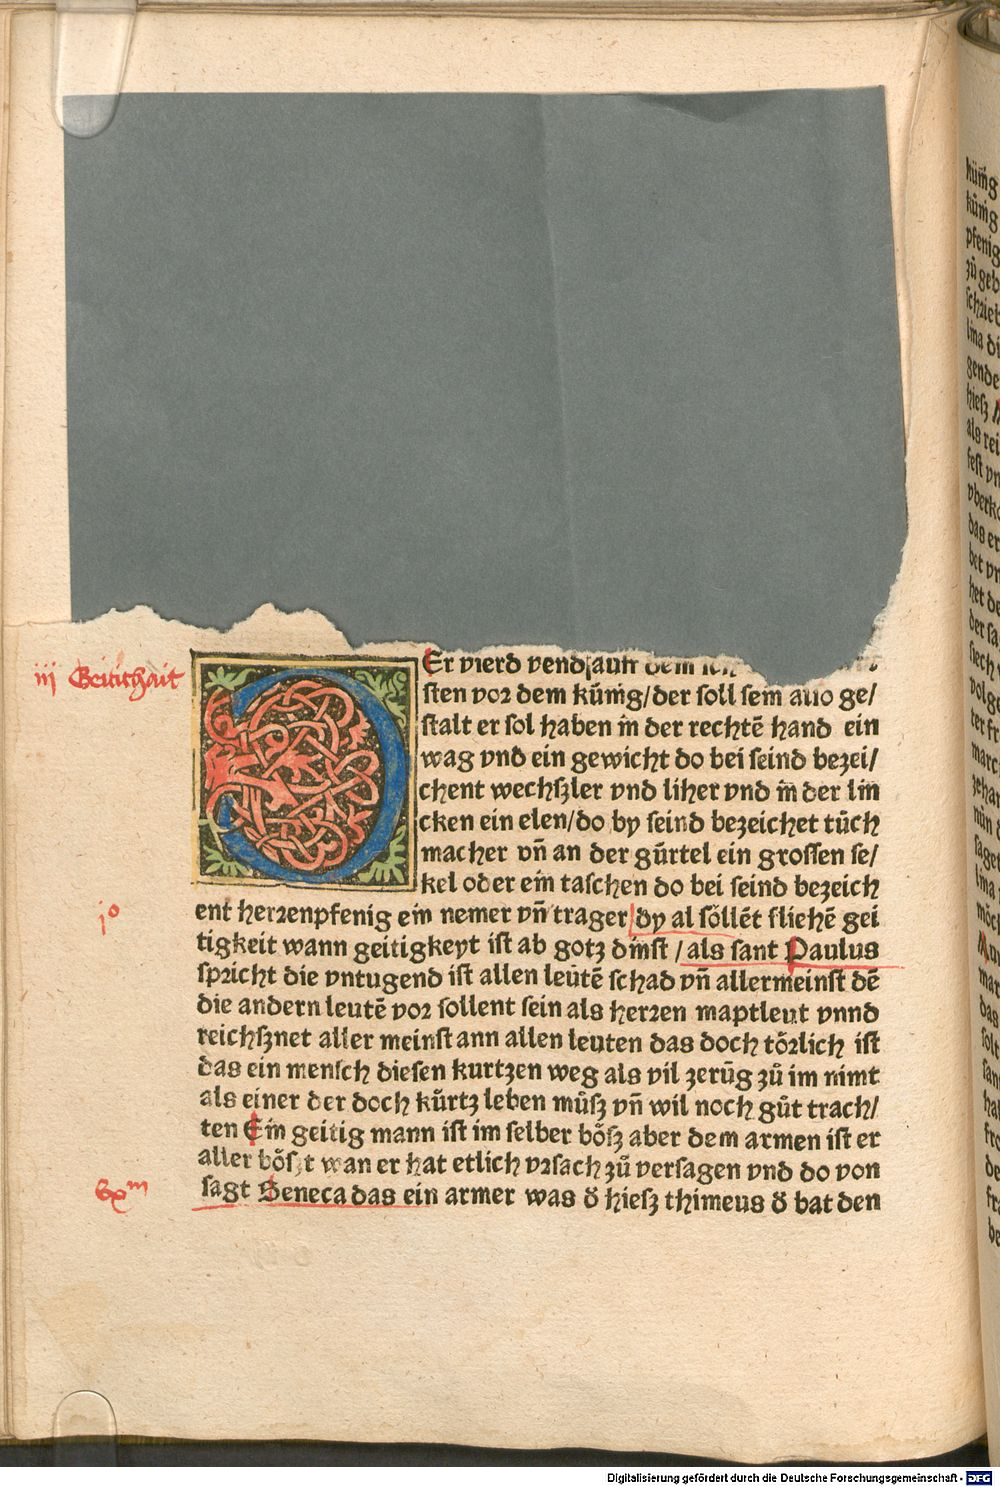 iij Geititkhait
Er vierd vend
sten vor dem kůnig/der soll sein also ge/
stalt er sol haben in der rechtē hand ein
wag vnd ein gewicht do bei seind bezei/
chent wechßler vnd liher vnd in der lin
cken ein elen/do by seind bezeichet tůch
macher vñ an der gůrtel ein grossen se/
kel oder ein taschen do bei seind bezeich
jº
ent herrenpfenig ein nemer vñ trager/dy al sőllēt fliehē gei
tigkeit wann geitigkeyt ist ab gotz dinst /als sant Paulus
spricht die vntugend ist allen leůtē schad vñ allermeinst dē
die andern leutē vor sollent sein als herren maptleut vnnd
reichßnet aller meinst ann allen leuten das doch tőrlich ist
das ein mensch diesen kurtzen weg als vil zerůg zů im nimt
als einer der doch kůrtz leben můß vñ wil noch gůt trach/
ten Ein geitig mann ist im selber bőß aber dem armen ist er
aller wan er hat etlich vrsach zů versagen vnd do von
sagt Seneca das ein armer was ď hieß thimeus ď bat den
kůnig
kůnig
pfenig
zů geb
schrieb
lina di
gende
hieß
als rei
fest vn
vberko
das er
bet vn
het de
der sa
siech
volge
ter fr
marc
zehan
nůn
saget
lina
mőch
mar
das
solt
san
hal
fro
de
fra
be
Digitalisierung gefördert durch die Deutsche Forschungsgemeinschaft - DFG